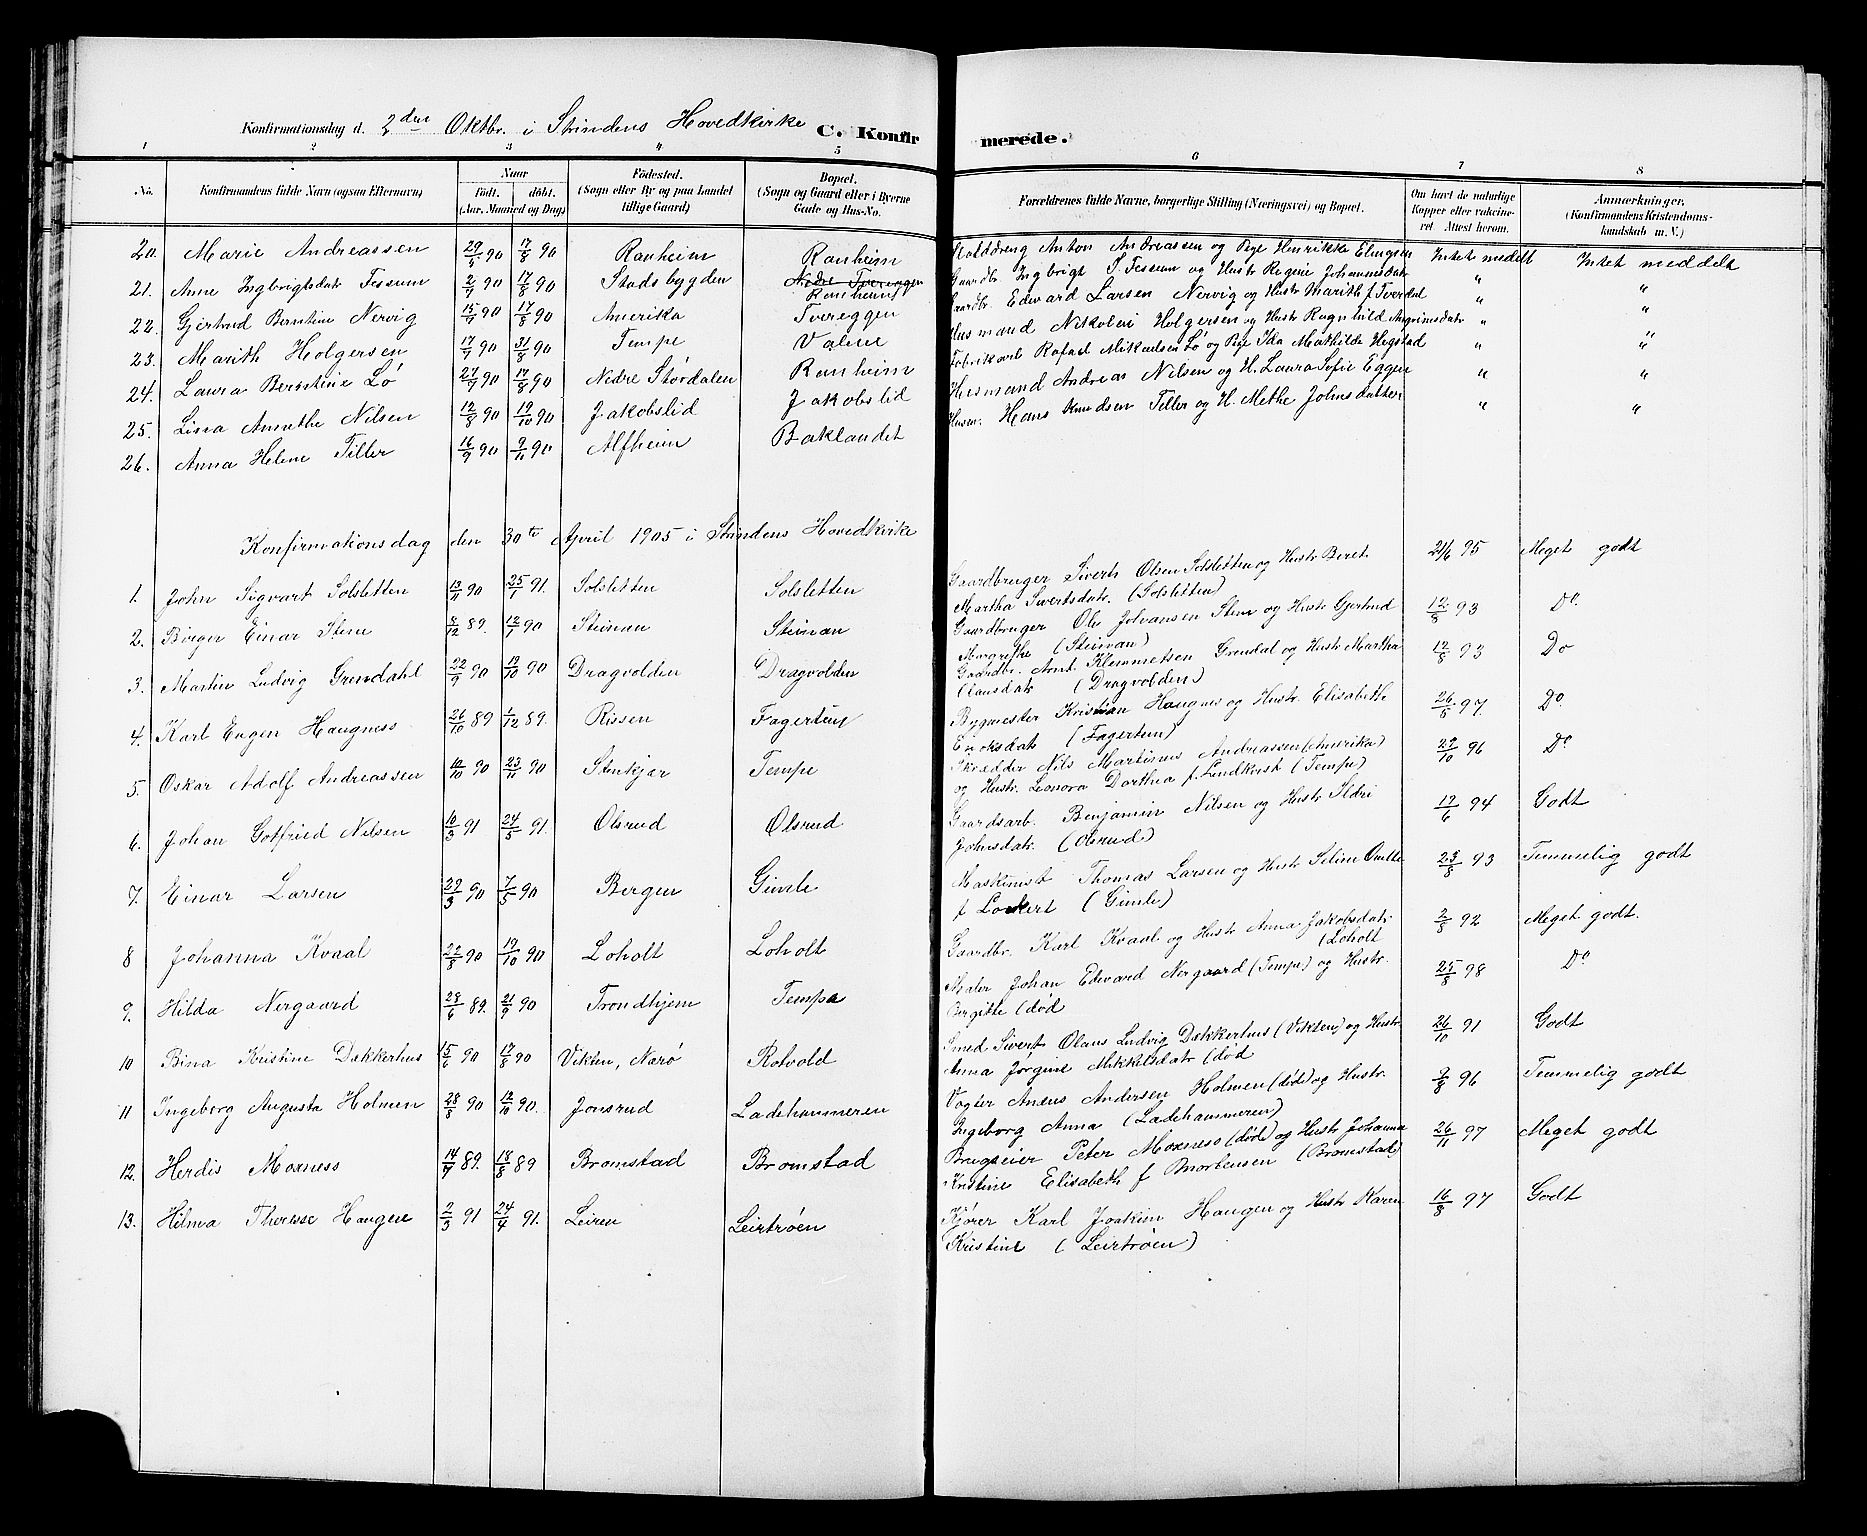 Konfirmationsdag d. 2den Oktbr. i Strindens Hovedkirke C. Konfir merede.
1 2 3 4 5 6 7 8
No. Konfirmandens fulde Navn (ogsaa Efternavn) Naar födt. döbt. (Aar, Maaned og Dag) Födested. (Sogn eller By og paa Landet tillige Gaard) Bopæl. (Sogn og Gaard eller i Byerne Gade og Hus-No. Forældrenes fulde Navne, borgerlige Stilling (Næringsvei) og Bopæl. Om havt de naturlige Kopper eller vakcineret. Attest herom. Anmærkninger, (Konfirmandens Kristendomskundskab m. V.)
20. Marie Andreassen 29/4 90 17/8 90 Ranheim Ranheim Anton Andreassen og Pige Henrikke Elingsen Intet meddelt Intet meddelt
21. Anne Ingbrigtsdatr Fessum 2/7 90 17/8 90 Stadsbygden Nedre Tvereggen Ranheim Gaardbr. Ingbrigt S. Fessum og Hustr Regine Johannesdatr " "
22. Gjertrud Berntine Nervig 15/7 90 17/8 90 Amerika Tvereggen Gaardbr. Edvard Larsen Nervig og Hustr Marith f Tverdal " "
23. Marith Holgersen 17/7 90 31/8 90 Tempe Valene Husmand Nikolai Holgersen og Hustr Ragnhild Angrimsdatr " "
24. Laura Berntine Lø 27/7 90 17/8 90 Nedre Stördalen Ranheim Fabrikarb Rafael Mikaelsen Lø og Pige Ida Mathilde Hegstad " "
25. Lina Annethe Nilsen 12/8 90 19/10 90 Jakobslid Jakobslid Husmand Andreas Nilsen og H. Laura Sofie Eggen " "
26. Anna Helene Tiller 16/9 90 9/11 90 Alfheim Baklandet Husm. Hans Knudsen Tiller og H. Methe Johnsdatter " "
Konfirmationsdag den 30te April 1905 i Strindens Hovedkirke
1. John Sigvart Solsletten 13/11 90 25/1 91. Solsletten Solsletten Gaardbruger Siverts Olsen Solsletten og Hustr Beret 21/6 95 Meget godt
Martha Sivertsdatr. (Solsletten)
2. Birger Einar Stene 8/12 89. 12/1 90 Steinan Steinan Gaardbruger Ole Johansen Stene og Hustr Gjertrud 12/8 93 Do.
Margrethe (Steinan)
3. Martin Ludvig Grendahl 22/9 90 19/10 90 Dragvolden Dragvolden Gaardbr. Arnt Klemmetsen Grendal og Hustr Martha 12/8 93 Do
Clausdatr (Dragvolden)
4. Karl Eugen Haugness 26/10 89 1/12 89. Rissen Fagertun Bygmester Kristian Haugnes og Hustr. Elisabeth 26/8 97. Do
Enoksdatr (Fagertun)
5. Oskar Adolf Andreassen 10/10 90 23/11 90 Stenkjær Tempe Skrædder Nils Martinus Andreassen (Amerika) 29/10 96 Do
og Hustr. Leonora Dorthea f. Lundkvist (Tempe)
6. Johan Gotfried Nilsen 10/3 91 24/5 91. Olsrud Olsrud Gaardsarb. Benjamin Nilsen og Hustr Ildri 19/6 94 Godt
Johnsdatr. (Olsrud)
7. Einar Larsen 29/3 90 7/5 90 Bergen Gimle Maskinist Thomas Larsen og Hustr Seline Omtte 23/8 93 Temmelig godt
f Lockert (Gimle)
8 Johanna Kvaal 22/8 90 19/10 90 Loholt Loholt Gaardbr. Karl Kvaal og Hustr Anna Jakobsdatr. 2/8 92 Meget godt.
(Loholt
9. Hilda Nergaard 28/6 89. 21/9 90 Trondhjem Tempe Maler Johan Edvard Nergaard (Tempe) og Hustr. 25/8 98 Do
Birgitte (død
10 Bina Kristine Dækkerhus 15/6 90 17/8 90 Vikten, Narö Rotvold Smed Sivert Olaus Ludvig Dækkerhus (Vikten) og Hustr 26/10 91 Godt
Anna Jörgine Mikkelsdatr (død
11 Ingeborg Augusta Holmen 28/8 90 12/10 90. Jonsrud Ladehammeren Vogter Anæus Andersen Holmen (død) og Hustr. 2/8 96 Temmelig godt
Ingeborg Anna (Ladehammeren)
12. Herdis Moxness 14/7 89. 18/8 89 Bromstad Bromstad Brugseier Peter Moxness (død) og Hustr Johanna 26/11 97 Meget godt
Kristine Elisabeth f Mortensen (Bromstad)
13. Hilma Therese Haugen 2/3 91 24/4 91. Leiren Leirtrøen Kjører Karl Joakim Haugen og Hustr Karen 16/8 97 Godt
Kristine (Leirtrøen)